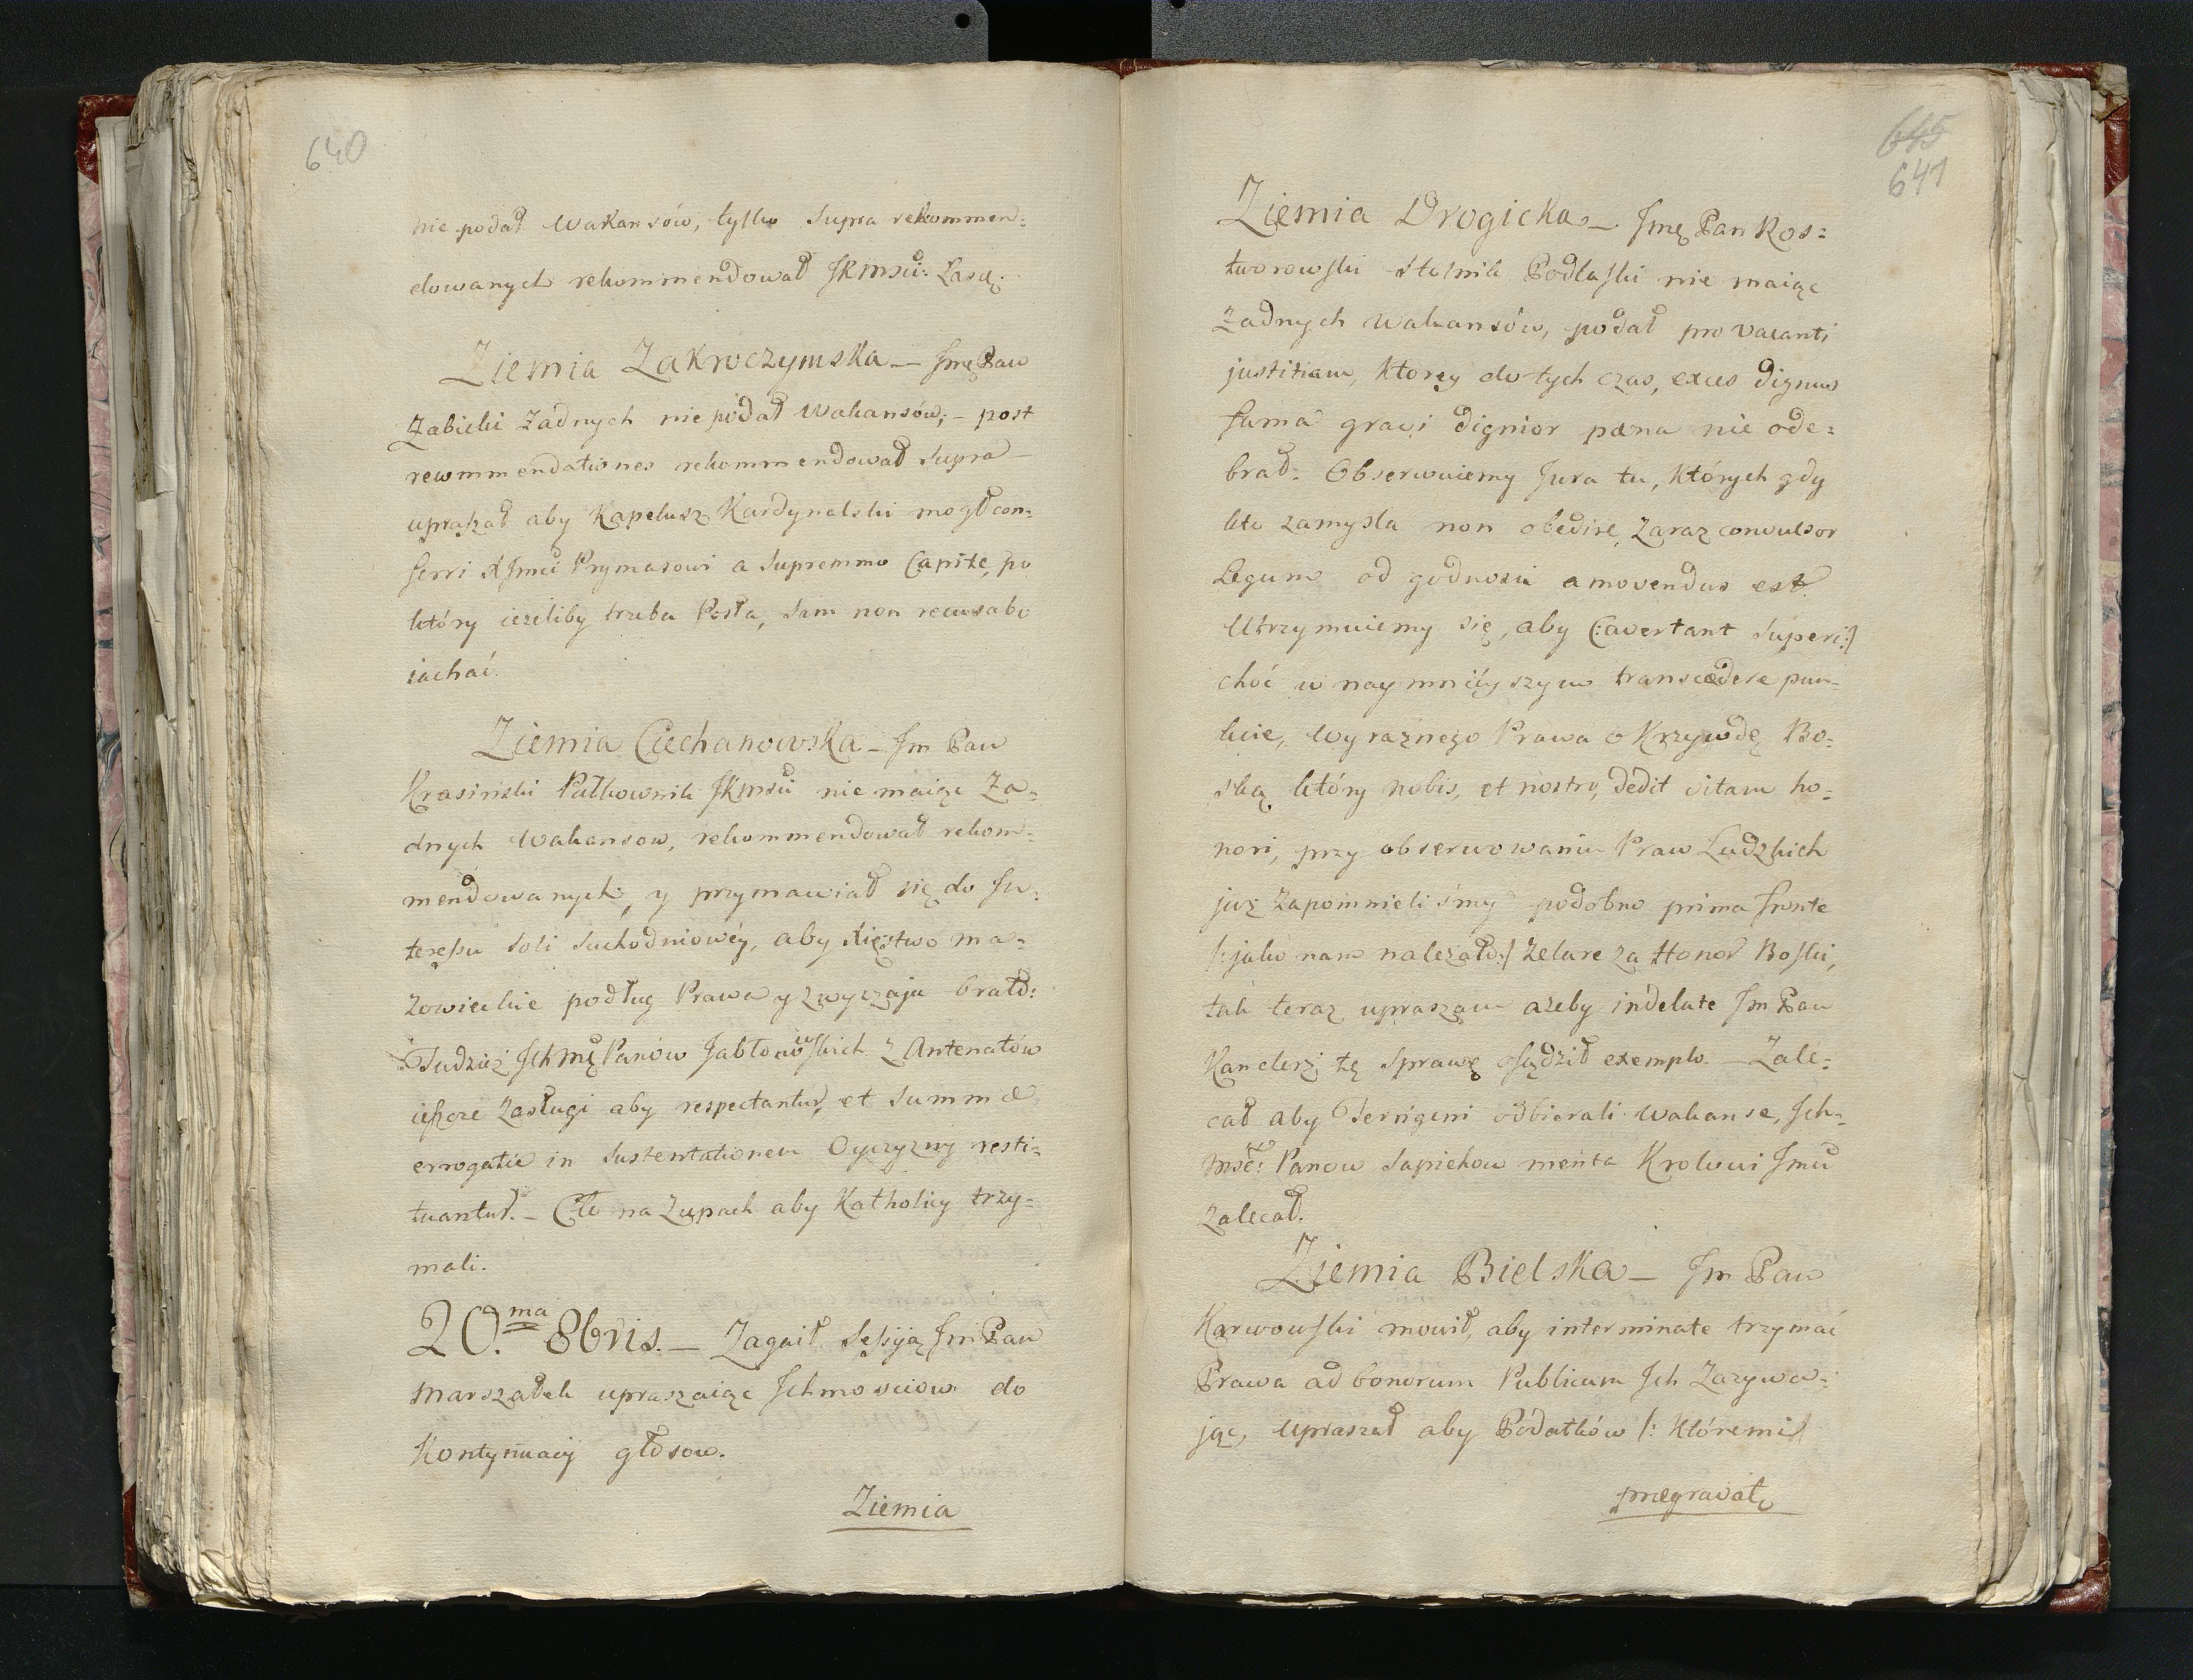 640
nie podał Wakansów, tylko Supra rekommen:
dowanych rekommendował JKMsci: Łasce.
Ziemia Zakroczymska — Jmę Pan
Zabicki Zadnych nie podał Wakansów; — post
recommendationes rekommendował Supra —
upraszał aby Kapelusz Kardynalski mogł con:
ferri X Jmci Prymasowi a Supremmo Capite, po
który ieżeliby trzeba Posła, Sam non recusabo
iachać.
Ziemia Ciechanowska — Jm Pan
Krasiński Pułkownik JKMsci nie maiąc Za:
dnych Wakansow, rekommendował rekom:
mendowanych, y przymawiał się do In:
teressu Soli Suchodniowéy, aby Xięstwo Ma:
zowieckie podług Prawa y zwyczaju brało:
Tudzież Ichmę Panów Jabłonowskich z Antenatów
ieszcze Zasługi aby respectantur, et Summæ
errogatæ in Sustentationem Oyczyzny resti:
tuantur. — Cło na Zupach aby Katholicy trzy:
mali.
20.ma 8bris. — Zagaił Sessyją Jm Pan
Marszałek upraszaiąc Ichmosciow do
Kontynuacij głosow.
Ziemia
645
641
Ziemia Drogicka — Jmę Pan Kos:
tworowski Stolnik Podlaski nie maiąc
Zadnych Wakansów, podał pro vacanti
justitiam, ktorey do tych czas, exces dignus
fama gravi dignior pæna nie ode:
brał. Obserwuiemy Jura tu, których gdy
kto zamysla non obedire, Zaraz convulsor
Legum od godnosci amovendus est.
Utrzymuiemy się, aby (:avertant Superi:)
choć w naymnieyszym transcedere pun:
kcie, wyraznego Prawa o Krzywdę Bo:
ską, który nobis, et nostro, dedit vitam ho:
nori, przy obserwowaniu Praw Ludzkich
już Zapomnieliśmy podobno prima fronte
/:jako nam należało:/ Zelare za Honor Boski,
tak teraz upraszam ażeby indelate Jm Pan
Kanclerz tę Sprawę osądził exemplo. — Zale:
cał aby Terrigeni odbierali Wakanse, Ich:
Mść: Panow Sapiehow merita Krolowi Jmci
Zalecał.
Ziemia Bielska — Jm Pan
Karwowski mowił, aby interminate trzymać
Prawa ad bonorum Publicum Ich Zazywa:
jąc, Upraszał aby Podatków /: Któremi
prægravat